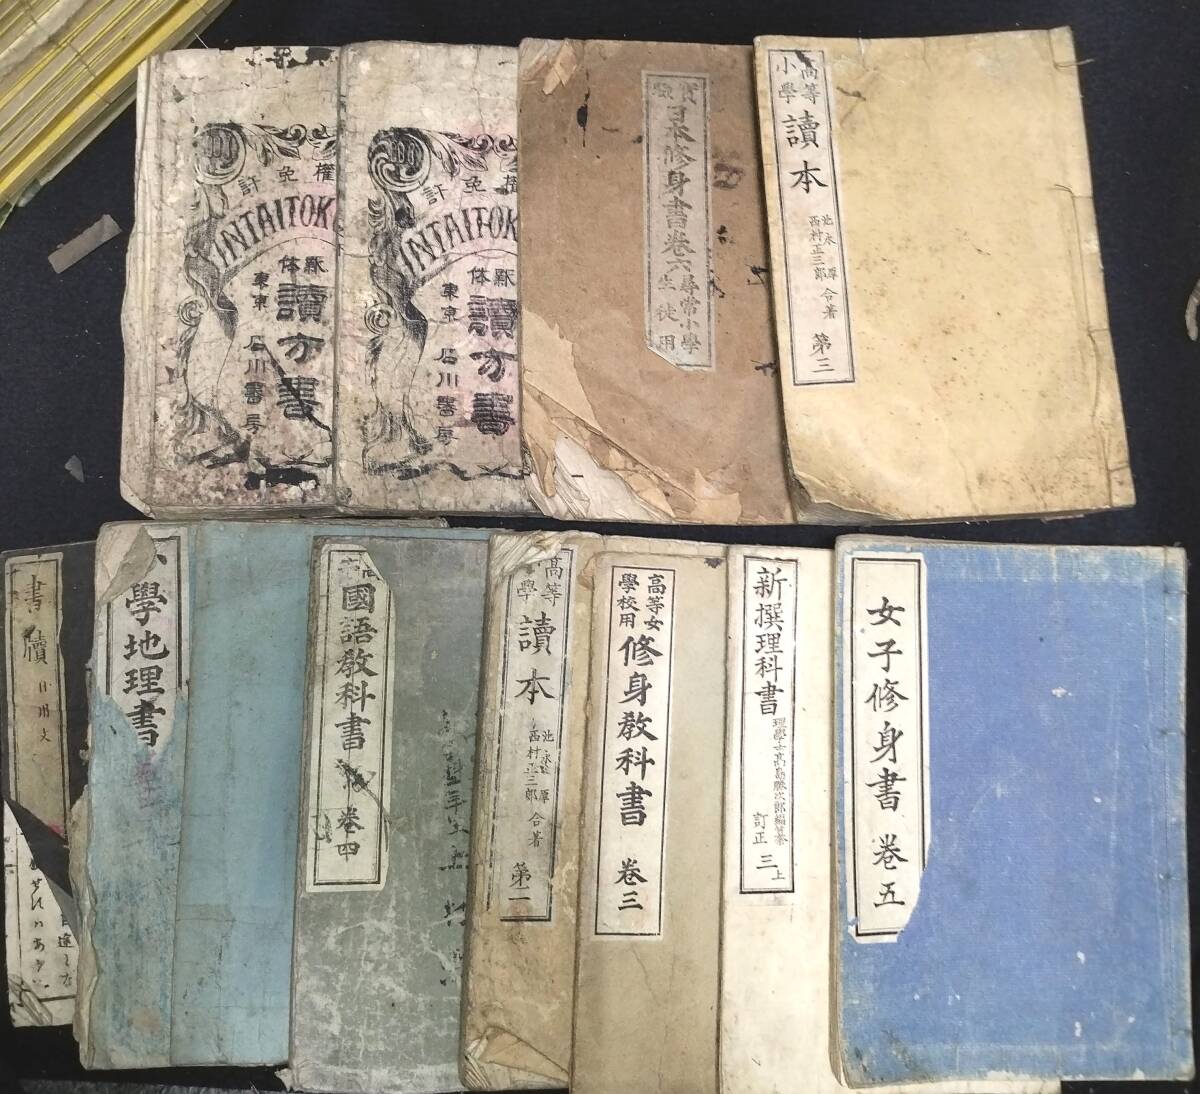 許免權
INTAITOK
体
新
讀方書
東京
石川書房
許免權
INTAITOK
体
新
讀方書
東京
石川書房
實驗
日本修身書卷六
尋常小學
生徒用
高等
小學
讀本
西村正三郎
合著
第三
書牘
日用文
小學地理書
國語教科書
卷四
高等
小學
讀本
西村正三郎
合著
第二
高等女
學校用
修身教科書
卷三
新撰理科書
理學士高島勝次郎編纂
訂正
三上
女子修身書
卷五